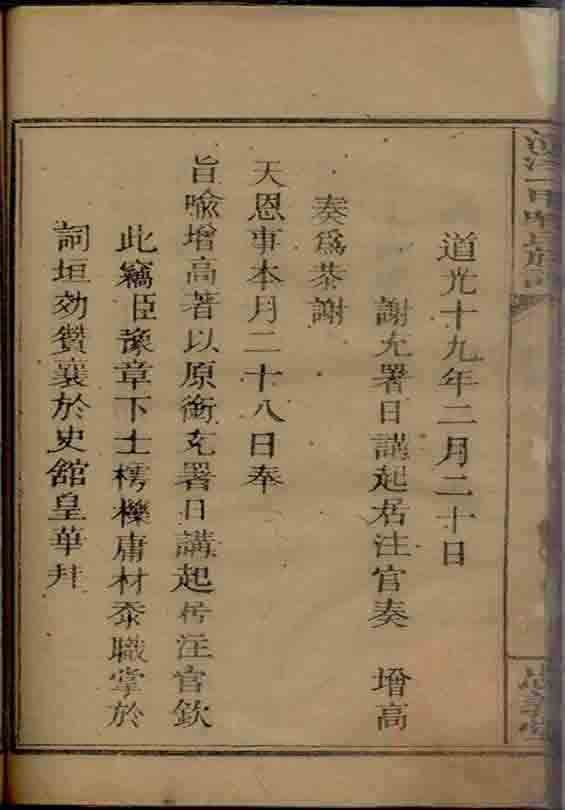 道光十九年二月二十日
謝充署日講起居注官奏　增高
奏爲恭謝
天恩事本月二十八日奉
旨喩增高著以原銜充署日講起居注官欽
此竊臣豫章下士樗櫟庸材忝職掌於
詞垣効贊襄於史館皇華拜